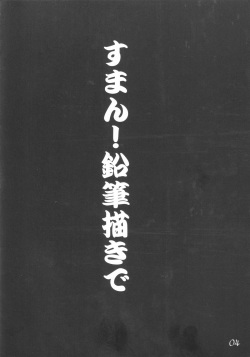 すまん！鉛筆描きで
04